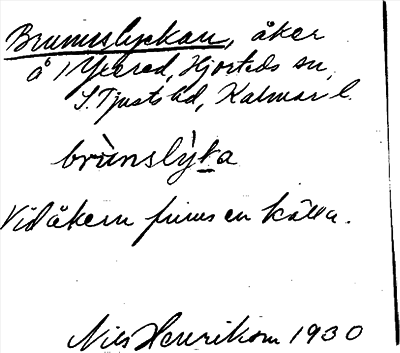 Brunnslyckan, åker
å 1 Yxered, Hjorteds sn,
S. Tjusts hd, Kalmar l.
brùnslỳka
Vid åkern finns en källa.
Nils Henrikson 1930